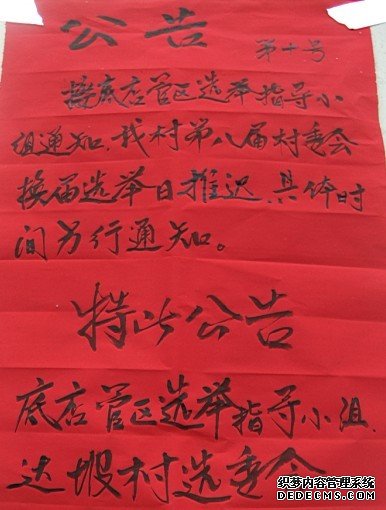 公告
第十号
接底店管区选举指导小
组通知,我村第八届村委会
换届选举日推迟,具体时
间另行通知。
特此公告
底店管区选举指导小组.
达坡村选委会
织梦内容管理系统
DEDECMS.COM